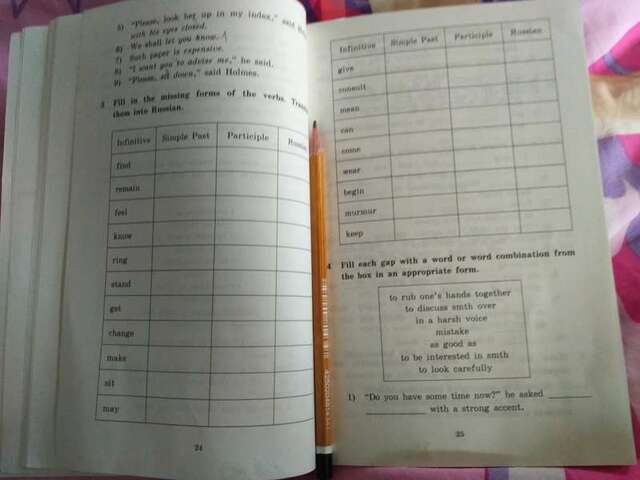 5) "Please, look her up in my index," said
with his eyes closed.
6) We shall let you know.
7) Such paper is expensive.
8) "I want you to advise me," he said.
9) "Please, sit down," said Holmes.
3 Fill in the missing forms of the verbs.
them into Russian.
Infinitive Simple Past Participle
find
remain
feel
know
ring
stand
get
change
make
sit
may
24
Infinitive Simple Past Participle Russian
give
consult
mean
can
come
wear
begin
murmur
keep
4 Fill each gap with a word or word combination from
the box in an appropriate form.
to rub one's hands together
to discuss smth over
in a harsh voice
mistake
as good as
to be interested in smth
to look carefully
1) "Do you have some time now?" he asked
with a strong accent.
25